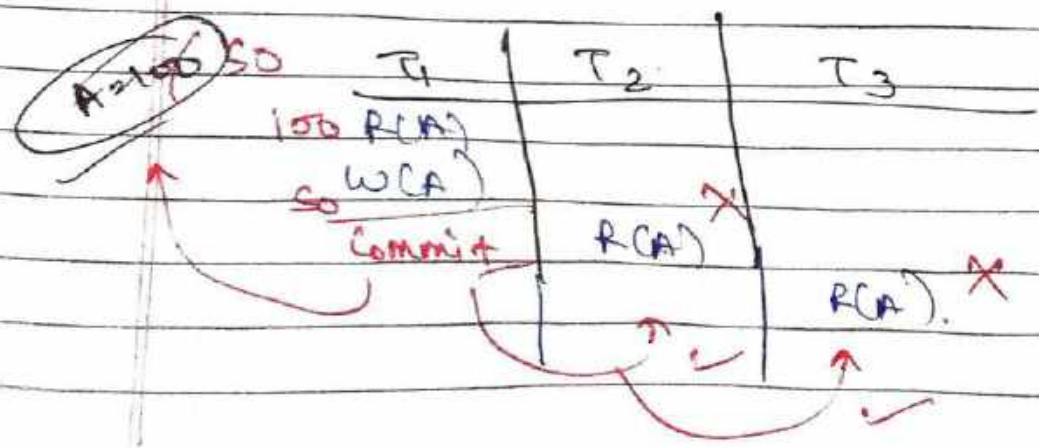 A=100 50 T1 T2 T3
100 R(A)
50 W(A)
Commit R(A)
R(A).